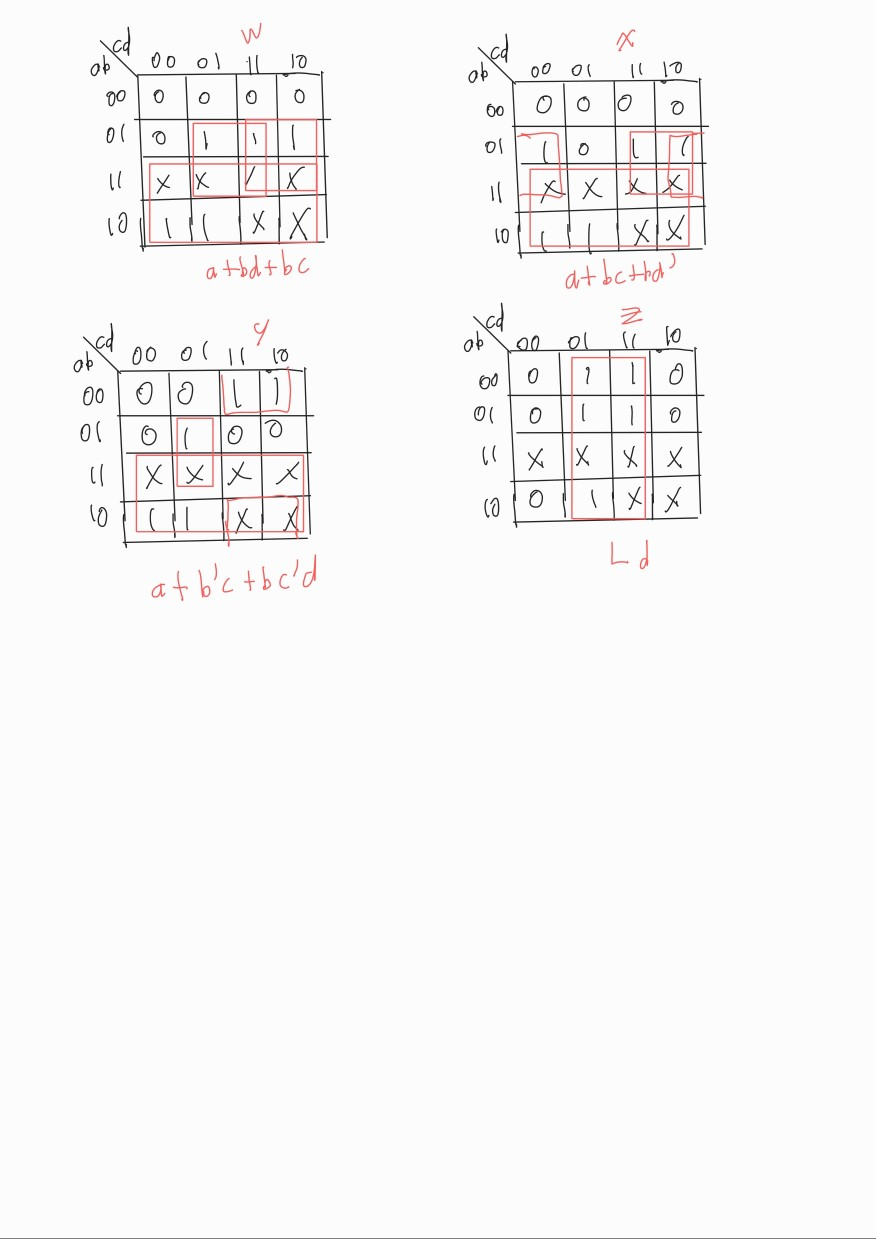 w
cd
ab 00 01 11 10
00 0 0 0 0
01 0 1 1 1
11 x x / x
10 1 1 x x
a+bd+bc
x
cd
ab 00 01 11 10
00 0 0 0 0
01 1 0 1 1
11 x x x x
10 1 1 x x
a+bc+bd'
y
cd
ab 00 01 11 10
00 0 0 1 1
01 0 1 0 0
11 x x x x
10 1 1 x x
a+b'c+bc'd
z
cd
ab 00 01 11 10
00 0 1 1 0
01 0 1 1 0
11 x x x x
10 0 1 x x
L d